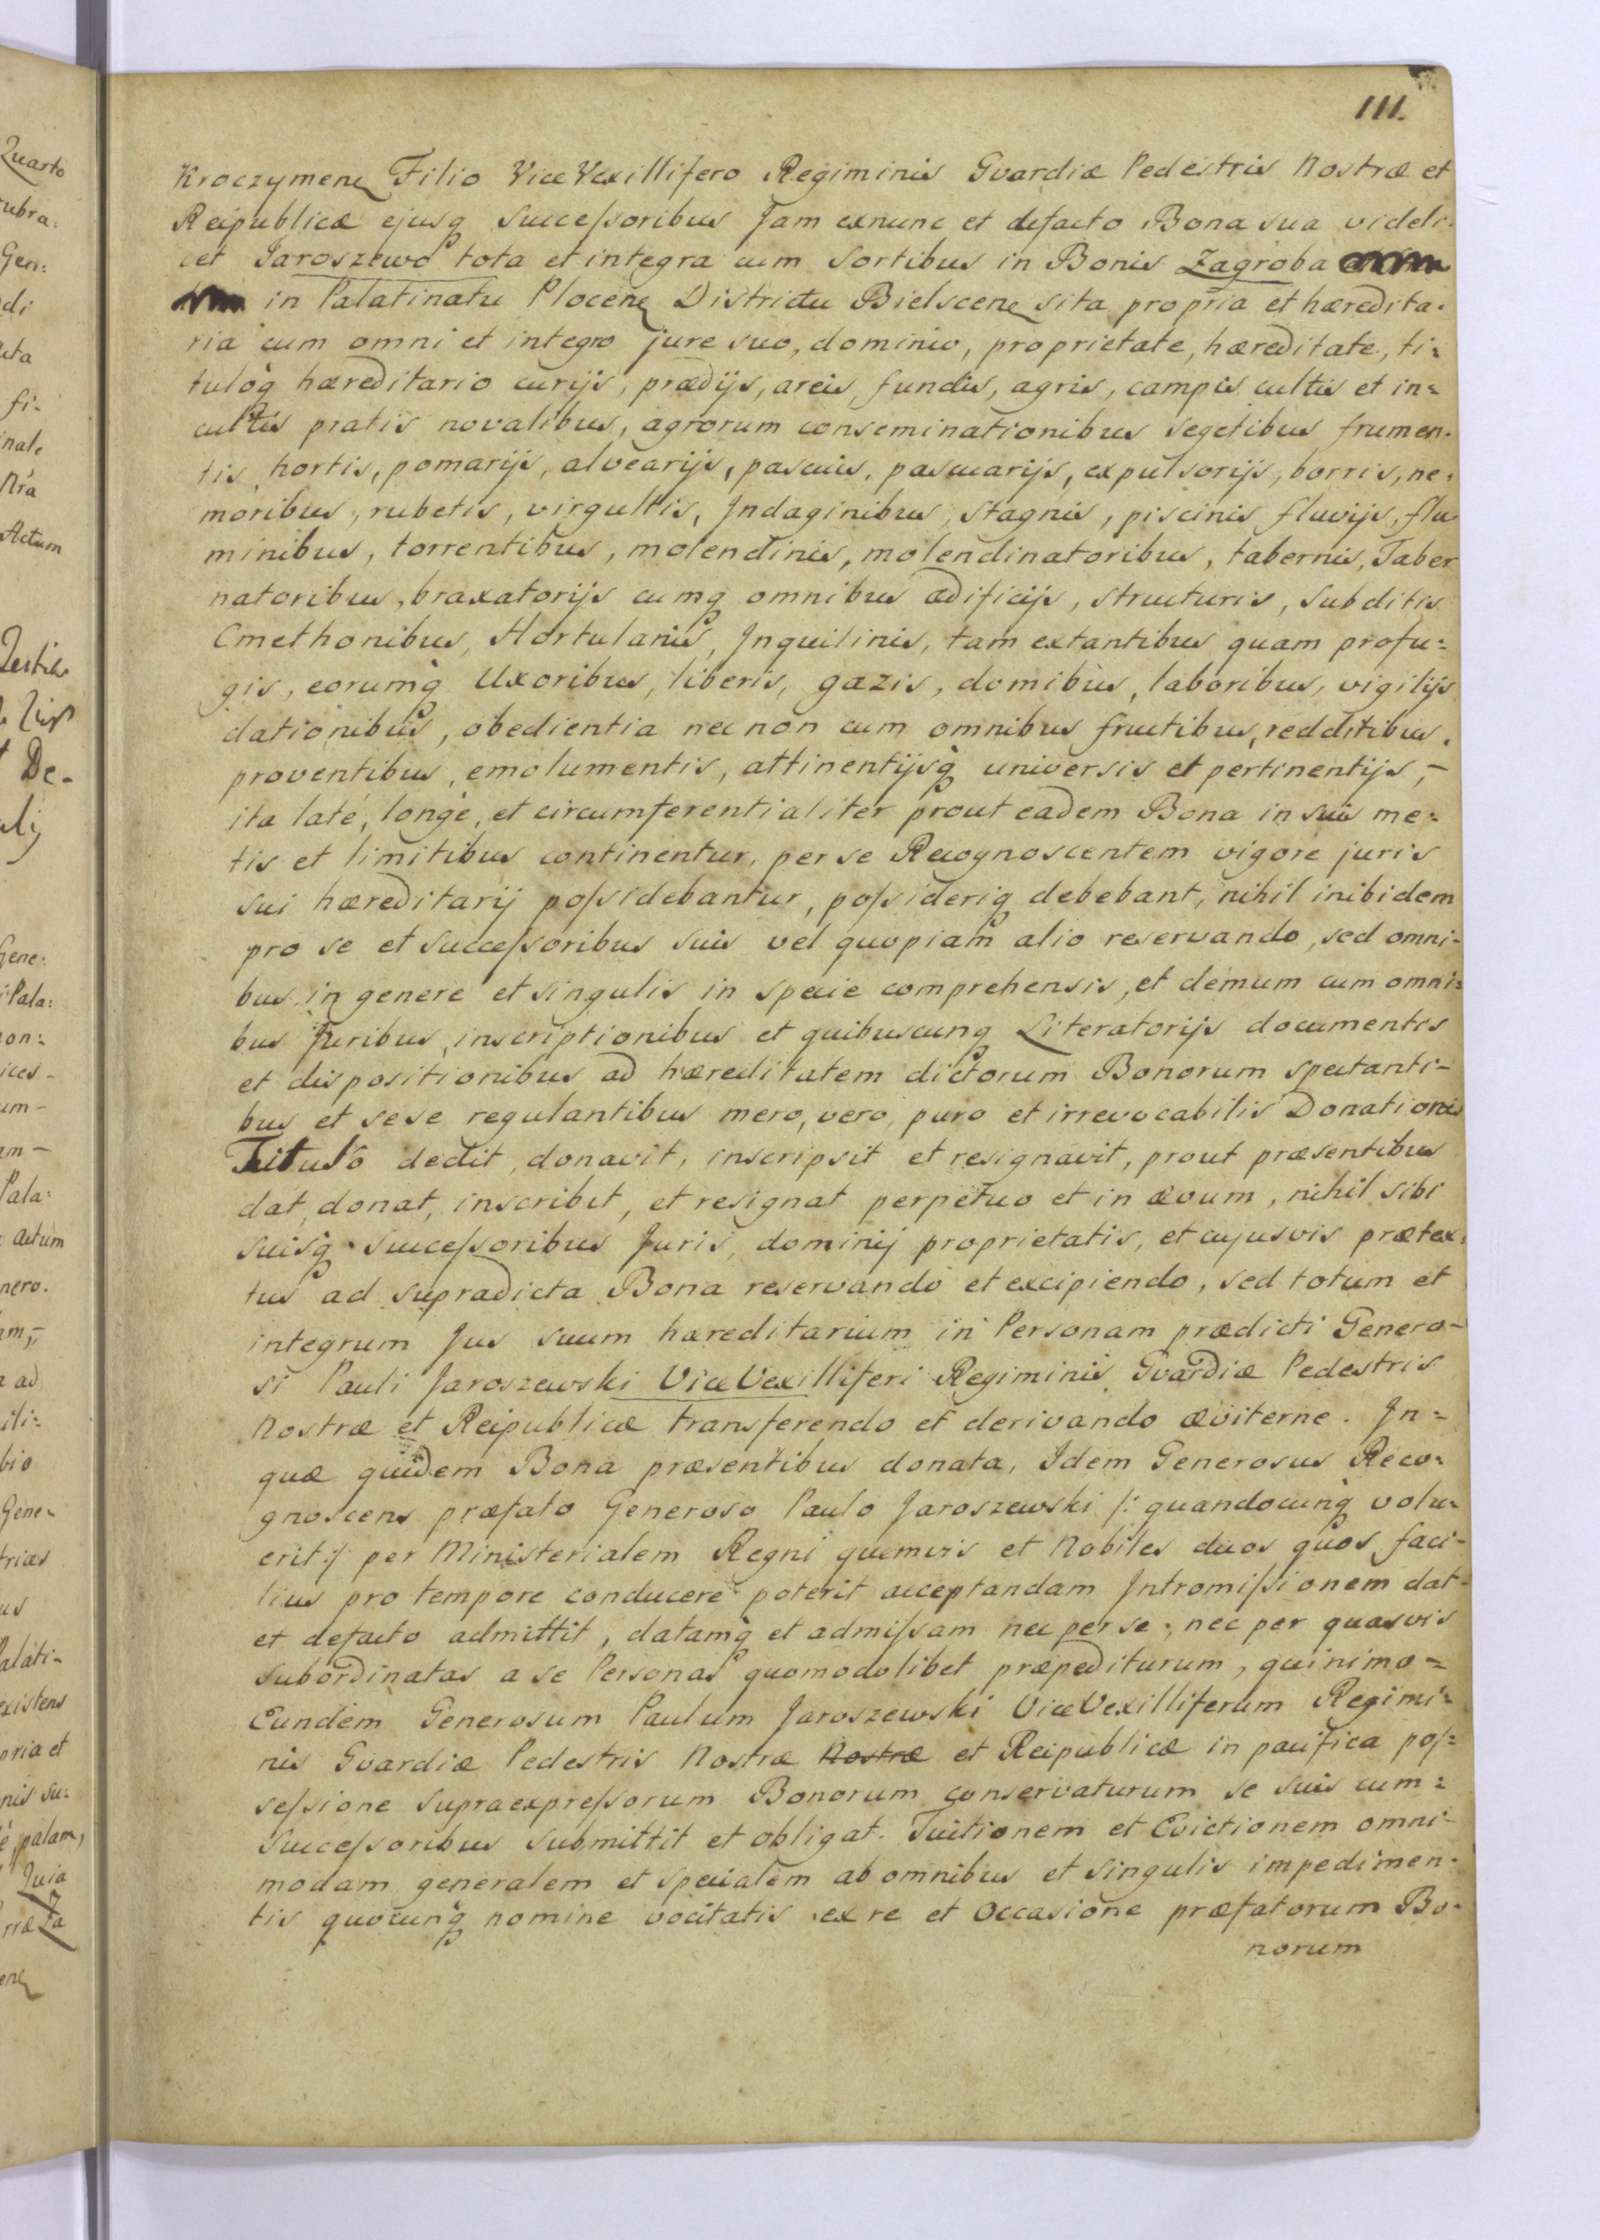 111.
Kroczymen Filio ViceVexillifero Regiminis Gvardiæ Pedestris Nostræ et
Reipublicæ ejusq Succeſsoribus Jam exnunc et defacto Bona sua videli-
cet Jaroszewo tota et integra cum Sortibus in Bonis Zagroba
in Palatinatu Plocen Districtu Bielscen sita propria et hæredita-
ria cum omni et integro jure suo, dominio, proprietate, hæreditate, ti=
tuloq hæreditario curijs, prædijs, areis, fundis, agris, campis cultis et in=
cultis pratis novalibus, agrorum conseminationibus segetibus frumen-
tis, hortis, pomarijs, alvearijs, pascuis, pascuarijs, expulsorijs, borris, ne-
moribus, rubetis, virgultis, Jndaginibus, Stagnis, piscinis fluvijs, flu
minibus, torrentibus, molendinis, molendinatoribus, tabernis, Taber
natoribus, braxatorijs cumq omnibus ædificijs, structuris, Subditis
Cmethonibus, Hortulanis, Jnquilinis, tam extantibus quam profu=
gis, eorumq Uxoribus, liberis, gazis, domibus, laboribus, vigilijs
dationibus, obedientia nec non cum omnibus fructibus, redditibus,
proventibus, emolumentis, attinentijsq universis et pertinentijs,-
ita late, longe, et circumferentialiter prout eadem Bona in suis me=
tis et limitibus continentur, per se Recognoscentem vigore juris
sui hæreditarij poſsidebantur, poſsideriq debebant, nihil inibidem
pro se et Succeſsoribus suis vel quopiam alio reservando, sed omni-
bus in genere et singulis in specie comprehensis, et demum cum omni=
bus Juribus, inscriptionibus et quibuscunq Literatorijs documentis
et dispositionibus ad hæreditatem dictorum Bonorum spectanti-
bus et sese regulantibus mero, vero, puro et irrevocabilis Donationis
Titulo dedit, donavit, inscripsit et resignavit, prout præsentibus
dat, donat, inscribit, et resignat perpetuo et in ævum, nihil sibi
suisq Succeſsoribus Juris, dominij proprietatis, et cujusvis prætex=
tus ad supradicta Bona reservando et excipiendo, sed totum et
integrum Jus suum hæreditarium in Personam prædicti Genero-
si Pauli Jaroszewski ViceVexilliferi Regiminis Gvardiæ Pedestris
Nostræ et Reipublicæ transferendo et derivando æviterne. Jn=
quæ quidem Bona præsentibus donata, Idem Generosus Reco=
gnoscens præfato Generoso Paulo Jaroszewski /: quandocunq volu=
erit :/ per Ministerialem Regni quemvis et Nobiles duos quos faci-
lius pro tempore conducere poterit acceptandam Jntromiſsionem dat
et defacto admittit, datamq et admiſsam nec per se, nec per quasvis
Subordinatas a se Personas quomodolibet præpediturum, quinimo=
Eundem Generosum Paulum Jaroszewski ViceVexilliferum Regimi=
nis Gvardiæ Pedestris Nostræ Nostræ et Reipublicæ in pacifica poſ=
seſsione Supraexpreſsorum Bonorum conservaturum se suis cum=
Succeſsoribus submittit et obligat. Tuitionem et Evictionem omni-
modam generalem et specialem ab omnibus et singulis impedimen-
tis quocunq nomine vocitatis ex re et Occasione præfatorum Bo-
norum